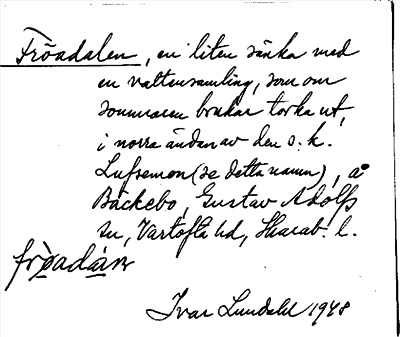 Fröadalen, en liten sänka med
en vattensamling, som om
sommaren brukar torka ut,
i norra ändan av den s. k.
Lufsemon (se detta namn), å
Bäckebo, Gustav Adolfs
sn, Vartofta hd, Skarab. l.
fröadán
Ivar Lundahl 1948